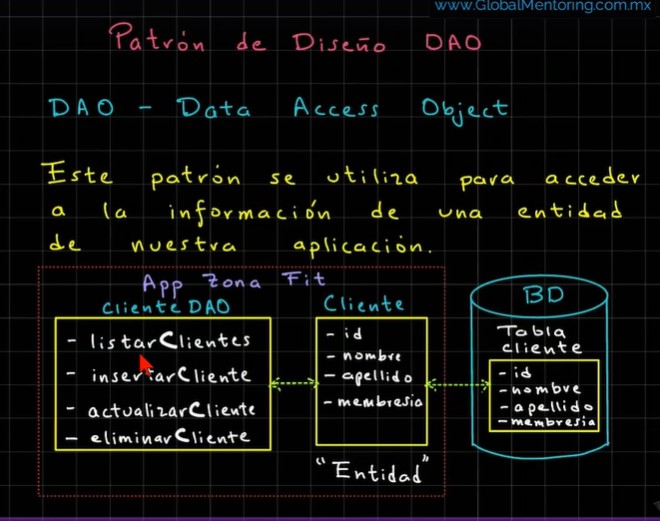 www.GlobalMentoring.com.mx
Patrón de Diseño DAO
DAO - Data Access Object
Este patrón se utiliza para acceder
a la información de una entidad
de nuestra aplicación.
App Zona Fit
ClienteDAO
- listarClientes
- insertarCliente
- actualizarCliente
- eliminarCliente
Cliente
- id
- nombre
- apellido
- membresia
"Entidad"
BD
Tabla
cliente
- id
- nombre
- apellido
- membresia